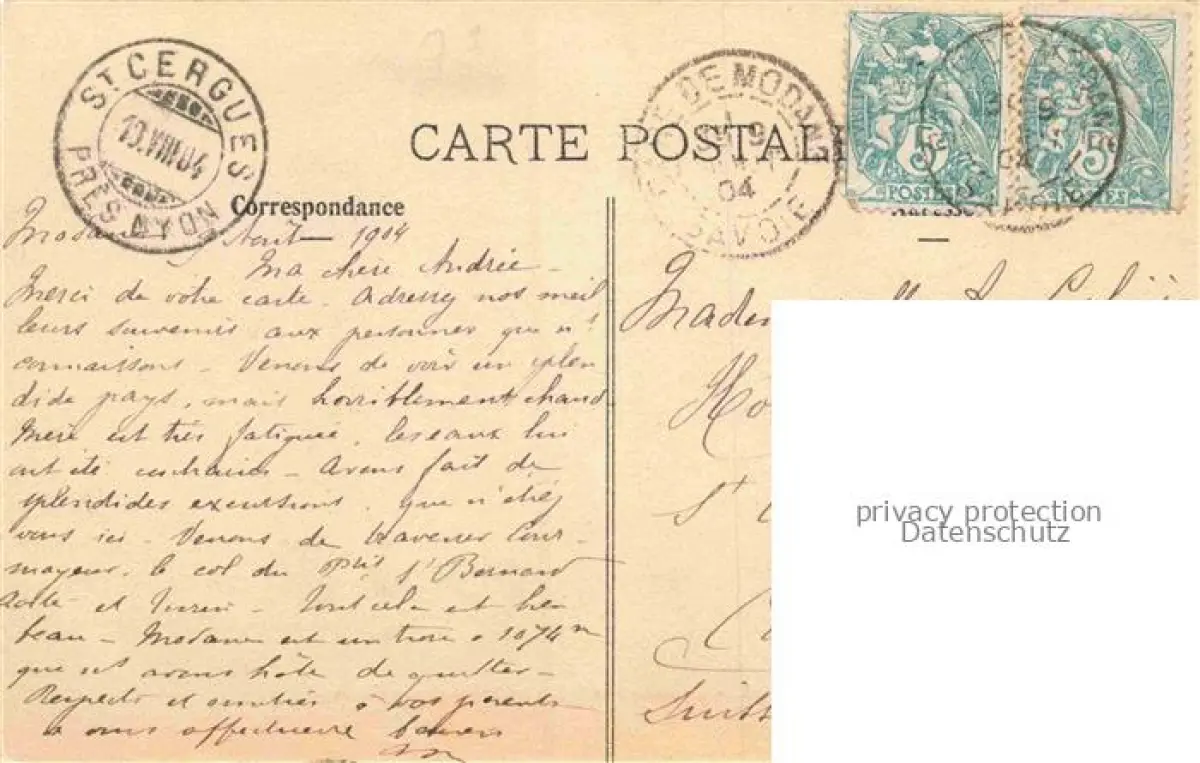 ST CERGUES
13.VIII.04
PRÈS NYON
DE MODANE
9
04
SAVOIE
5c
POSTES
5c
POSTES
CARTE POSTALE
Correspondance
Adresse
Août 1904
Ma chère Andrée -
Merci de votre carte. Adressez nos meil
leurs souvenirs aux personnes que n/s
connaissons - Venons de voir un splen
dide pays, mais horriblement chaud
Mère est très fatiguée, les eaux lui
ont été contraires - Avons fait de
splendides excursions, que n'étiez
vous ici - Venons de traverser Cour-
mayeur, le col du Ptit St Bernard
Aoste et Turin - Tout cela est bien
beau - Modane est un trou à 1074 m
que n/s avons hâte de quitter -
Respects et amitiés à vos parents
à vous affectueux baisers
St
Suisse
privacy protection
Datenschutz